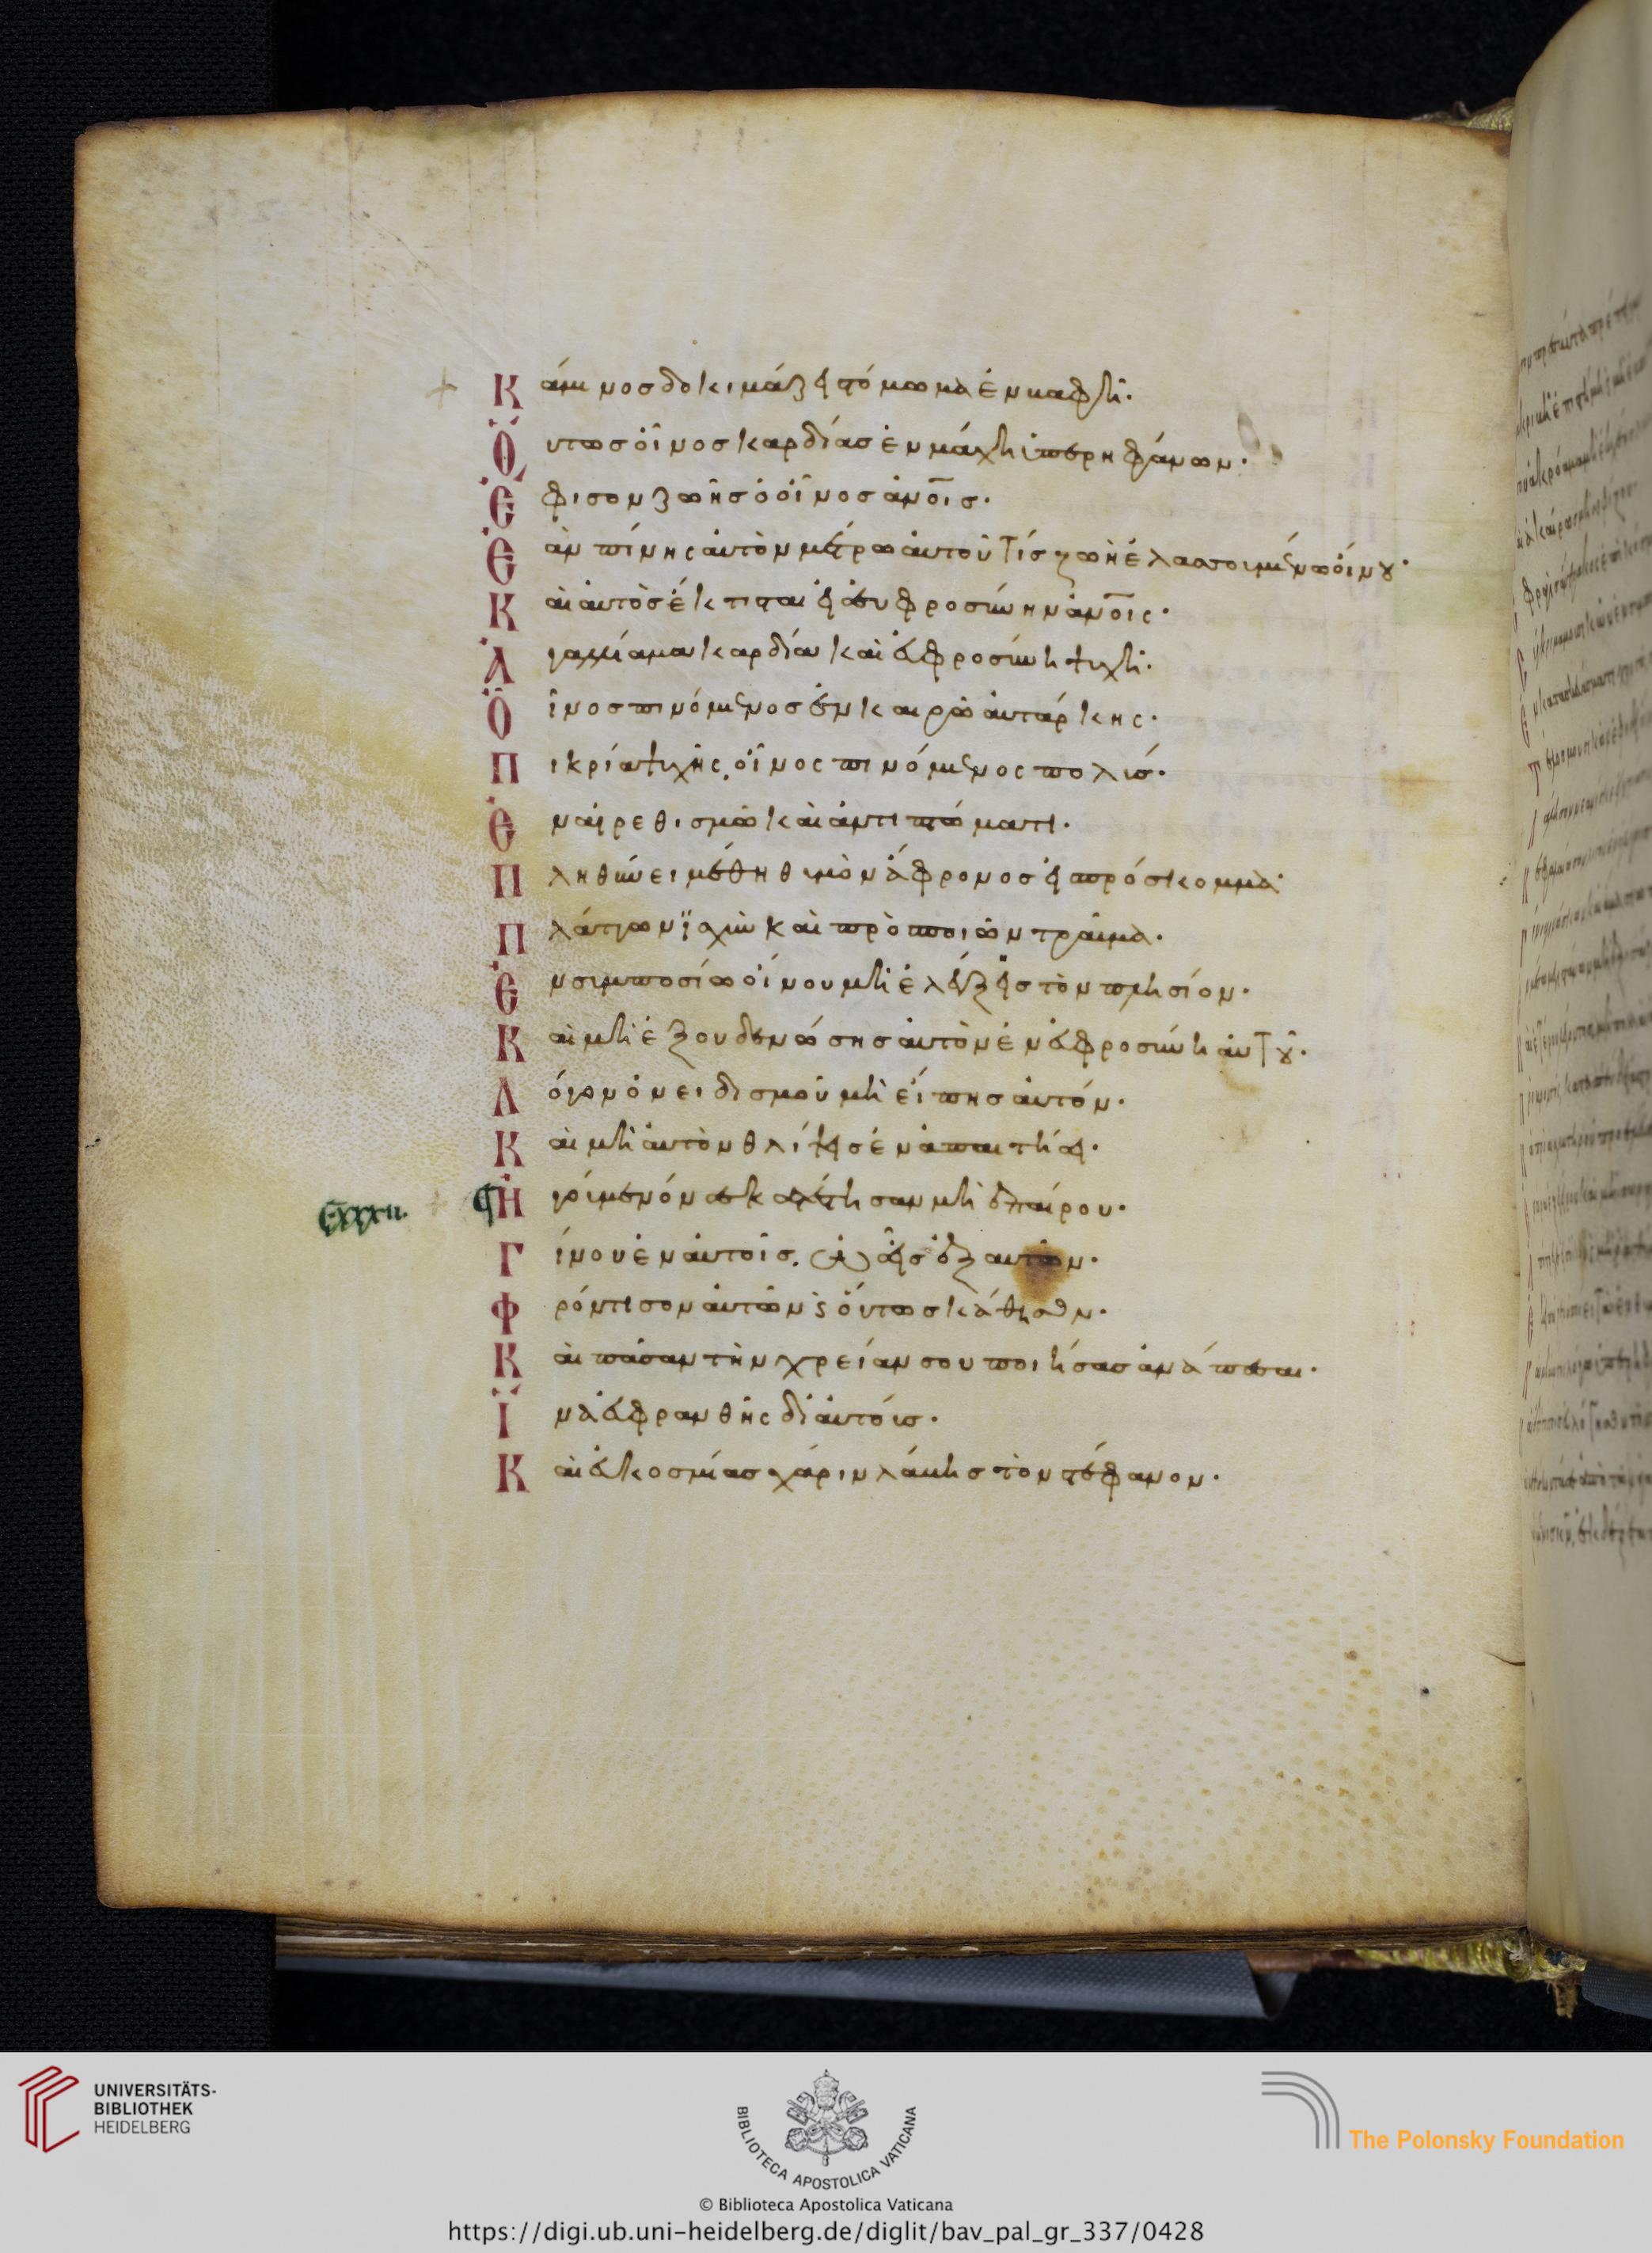 Κάμινος δοκιμάζει στόμωμα ἐν βαφῆ·
Ὅυτως ὁ οἶνος καρδίας ἐν μάχη ὑπερηφάνων·
Ἔφισον ζωῆς ὁ οἶνος ἀν͞οις·
Ἐὰν πίνης αὐτὸν μέτρω αὐτοῦ τίς ζωὴ ἐλασσουμένω οἴνου·
Καὶ αὐτὸς ἔκτισται εἰς εὐφροσύνην ἀν͞οις·
Ἀγαλλίαμα καρδίας καὶ εὐφροσύνη ψυχῆ·
Ὄἶνος πινόμενος ἐν καιρῶ αὐτάρκης·
Πικρία ψυχῆς, οἶνος πινόμενος πολύς·
Ἐν αἰρεθισμῶ καὶ ἀντιπτώματι·
Πληθύνει μέθη θυμὸν ἄφρονος εἰς πρόσκομμα·
Πλάττων ἰσχὺν καὶ προσποιῶν τραῦμα·
Ἐν συμποσίω οἴνου μὴ ἐλέγξης τὸν πλησίον·
Καὶ μὴ ἐξουδενώσης αὐτὸν ἐν εὐφροσύνη αὐτοῦ·
Λόγον ὀνειδισμοῦ μὴ εἴπης αὐτόν·
Καὶ μὴ αὐτὸν θλίψης ἐν ἀπαιτήσει·
C·xxxii· Ἡγούμενόν σε κατέστησαν μὴ ἐπαίρου·
Γίνου ἐν αὐτοῖς. ὡς εἷς ἐξ αὐτῶν·
Φρόντισον αὐτῶν καὶ οὕτως κάθησον·
Καὶ πᾶσαν τὴν χρείαν σου ποιήσας ἀνάπεσαι·
Ἵνα εὐφρανθῆς δι αὐτούς·
Καὶ εὐκοσμίας χάριν λάβης στέφανον·
UNIVERSITÄTS-
BIBLIOTHEK
HEIDELBERG
BIBLIOTECA APOSTOLICA VATICANA
The Polonsky Foundation
© Biblioteca Apostolica Vaticana
https://digi.ub.uni-heidelberg.de/diglit/bav_pal_gr_337/0428